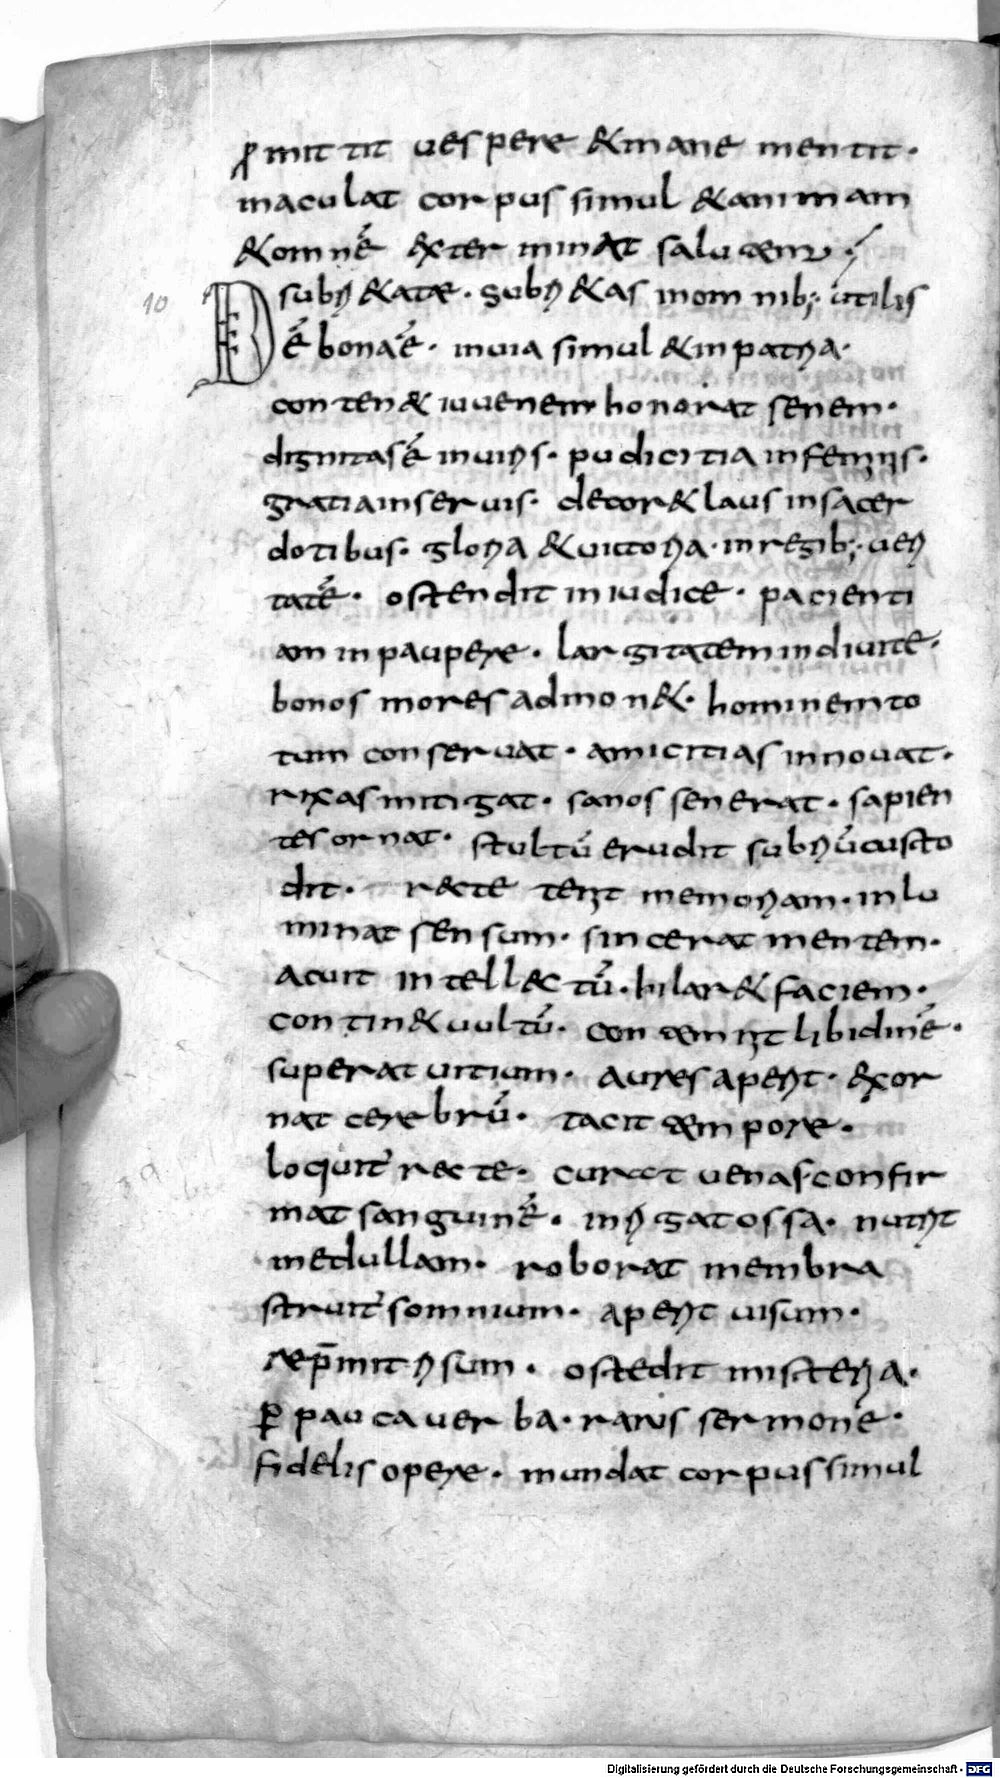 ꝓmittit uespere &mane mentit·
maculat corpus simul &animam
&omnē exterminat salutem·
10 De
subri&ate· Subri&as inomnib; utilis
ē bonaē· inuia simul &inpatria·
conten& iuuenem honorat senem·
dignitasē inuiris· pudicitia infeminis·
gratiainseruis· decor& laus insacer
dotibus· gloria &uictoria· inregib;· ueri
tatē· ostendit iniudice· pacienti
am inpaupere· largitatemindiuite·
bonos mores admon&· hominemto
tum conseruat· amicitias innouat·
rixasmitigat· sanos senerat· sapien
tes ornat· stultū erudit subriūcusto
dit· recte tenit memoriam· inlu
minat sensum· sincerat mentem·
acuit intell&ctū· hilar& faciem·
contin& uultū· contemnit libidinē·
superat uitium· auresaperit· exor
nat cerebrū· tacit tempore·
loquit' recte· curat uenas·confir
mat sanguinē· inrigat ossa· nutrit
medullam· roborat membra
struit' somnium· aperit uisum·
rep̄mit risum· ostedit misteria·
ꝑ pauca uerba· rarus sermone·
fidelis opere· mundat corpussimul
Digitalisierung gefördert durch die Deutsche Forschungsgemeinschaft - DFG